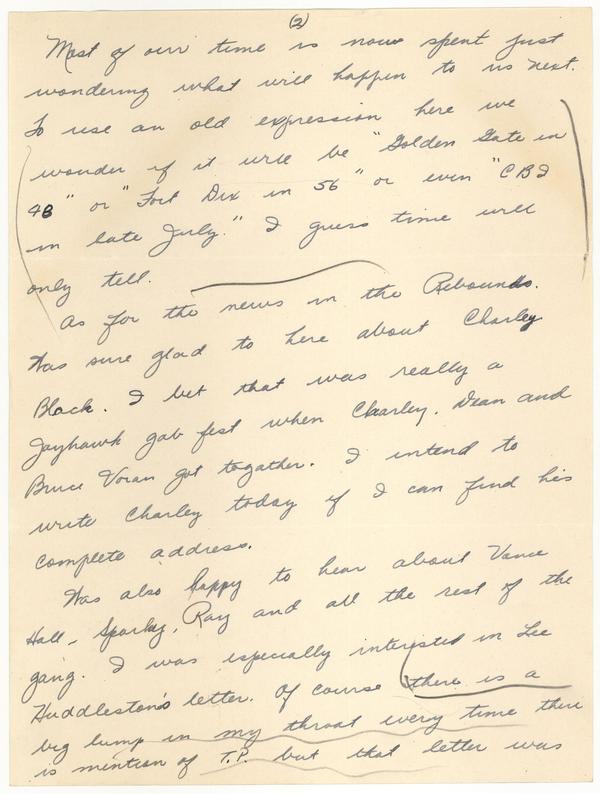 (2)
Most of our time is now spent just
wondering what will happen to us next.
To use an old expression here we
wonder if it will be "Golden Gate in
48" or "Fort Dix in 56" or even "CBI
in late July." I guess time will
only tell.
As for the news in the Rebounds.
Was sure glad to here about Charley
Black. I bet that was really a
Jayhawk gab fest when Charley, Dean and
Bruce Voran got togather. I intend to
write Charley today if I can find his
complete address.
Was also happy to hear about Vance
Hall, Sparky, Ray and all the rest of the
gang. I was especially interested in Lee
Huddleston's letter. Of course there is a
big lump in my throat every time there
is mention of T.P. but that letter was